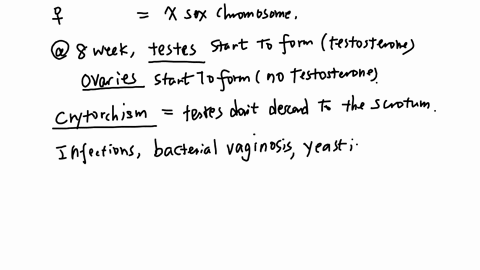 ♀ = X sex chromosome.
@ 8 week, testes start to form (testosterone)
ovaries start to form (no testosterone)
Crytorchism = testes don't descend to the scrotum.
Infections, bacterial vaginosis, yeast i